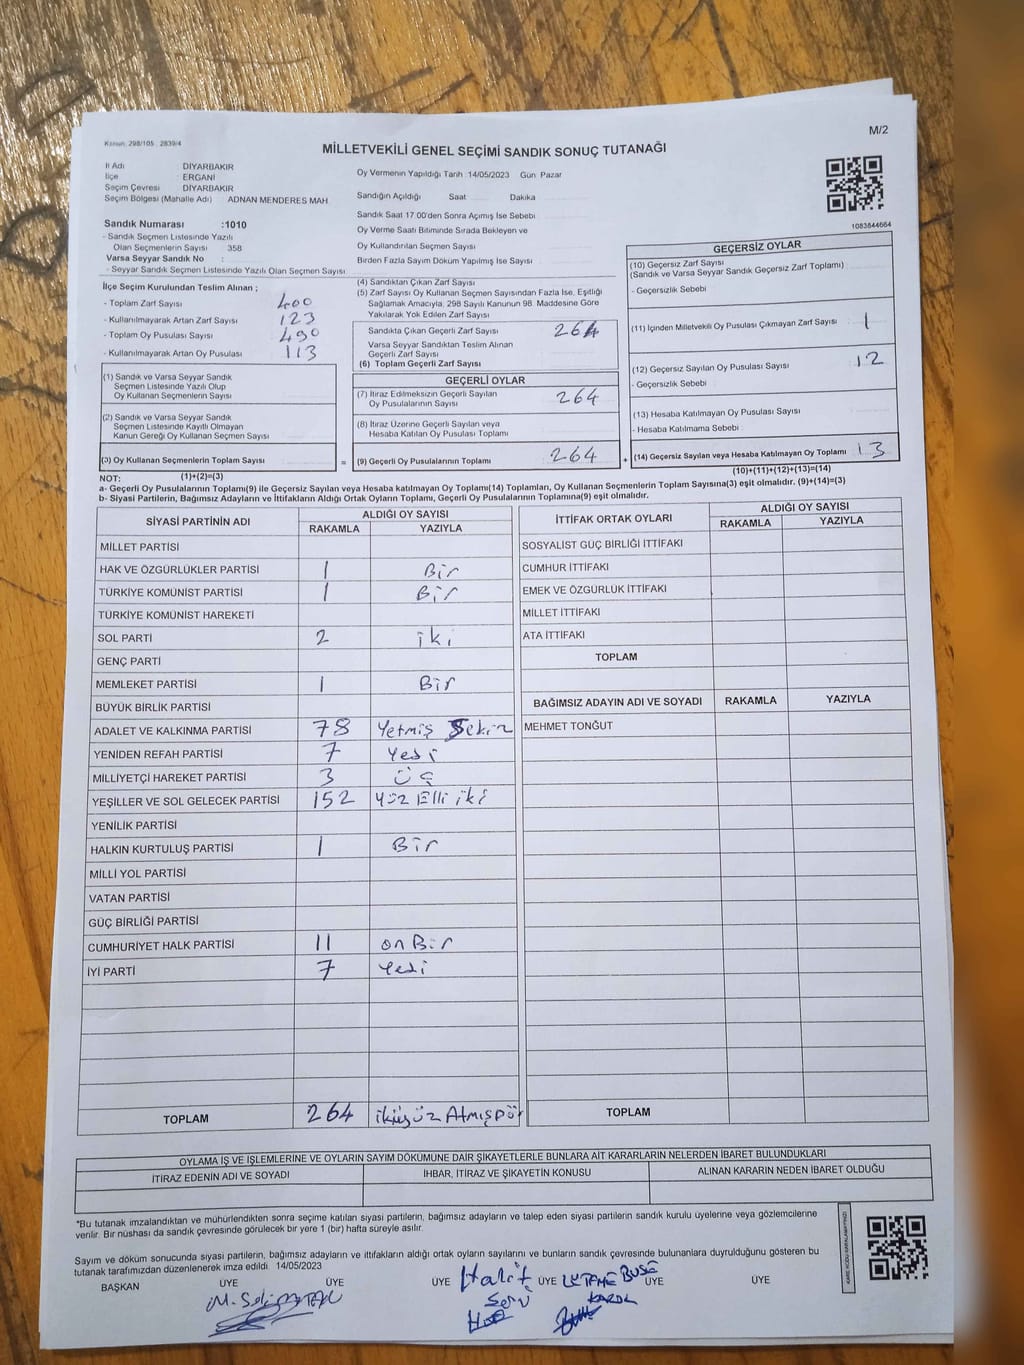 M/2
Kanun: 298/105 , 2839/4
MİLLETVEKİLİ GENEL SEÇİMİ SANDIK SONUÇ TUTANAĞI
İl Adı : DİYARBAKIR
İlçe : ERGANİ
Seçim Çevresi : DİYARBAKIR
Seçim Bölgesi (Mahalle Adı) : ADNAN MENDERES MAH.
Oy Vermenin Yapıldığı Tarih :14/05/2023 Gün: Pazar
Sandığın Açıldığı Saat Dakika
Sandık Saat 17:00'den Sonra Açımış İse Sebebi
Oy Verme Saati Bitiminde Sırada Bekleyen ve
Oy Kullandırılan Seçmen Sayısı
Birden Fazla Sayım Döküm Yapılmış İse Sayısı
1083844664
Sandık Numarası :1010
- Sandık Seçmen Listesinde Yazılı
Olan Seçmenlerin Sayısı : 358
Varsa Seyyar Sandık No :
- Seyyar Sandık Seçmen Listesinde Yazılı Olan Seçmen Sayısı:
İlçe Seçim Kurulundan Teslim Alınan ;
- Toplam Zarf Sayısı 400
- Kullanılmayarak Artan Zarf Sayısı 123
- Toplam Oy Pusulası Sayısı 490
- Kullanılmayarak Artan Oy Pusulası 113
(1) Sandık ve Varsa Seyyar Sandık
Seçmen Listesinde Yazılı Olup
Oy Kullanan Seçmenlerin Sayısı
(2) Sandık ve Varsa Seyyar Sandık
Seçmen Listesinde Kayıtlı Olmayan
Kanun Gereği Oy Kullanan Seçmen Sayısı
(3) Oy Kullanan Seçmenlerin Toplam Sayısı
(1)+(2)=(3)
(4) Sandıktan Çıkan Zarf Sayısı
(5) Zarf Sayısı Oy Kullanan Seçmen Sayısından Fazla İse, Eşitliği
Sağlamak Amacıyla, 298 Sayılı Kanunun 98. Maddesine Göre
Yakılarak Yok Edilen Zarf Sayısı
Sandıkta Çıkan Geçerli Zarf Sayısı 264
Varsa Seyyar Sandıktan Teslim Alınan
Geçerli Zarf Sayısı
(6) Toplam Geçerli Zarf Sayısı
GEÇERLİ OYLAR
(7) İtiraz Edilmeksizin Geçerli Sayılan
Oy Pusulalarının Sayısı 264
(8) İtiraz Üzerine Geçerli Sayılan veya
Hesaba Katılan Oy Pusulası Toplamı
= (9) Geçerli Oy Pusulalarının Toplamı 264 +
GEÇERSİZ OYLAR
(10) Geçersiz Zarf Sayısı
(Sandık ve Varsa Seyyar Sandık Geçersiz Zarf Toplamı)
- Geçersizlik Sebebi :
(11) İçinden Milletvekili Oy Pusulası Çıkmayan Zarf Sayısı 1
(12) Geçersiz Sayılan Oy Pusulası Sayısı 12
- Geçersizlik Sebebi :
(13) Hesaba Katılmayan Oy Pusulası Sayısı
- Hesaba Katılmama Sebebi :
(14) Geçersiz Sayılan veya Hesaba Katılmayan Oy Toplamı 13
(10)+(11)+(12)+(13)=(14)
NOT:
a- Geçerli Oy Pusulalarının Toplamı(9) ile Geçersiz Sayılan veya Hesaba katılmayan Oy Toplamı(14) Toplamları, Oy Kullanan Seçmenlerin Toplam Sayısına(3) eşit olmalıdır. (9)+(14)=(3)
b- Siyasi Partilerin, Bağımsız Adayların ve İttifakların Aldığı Ortak Oyların Toplamı, Geçerli Oy Pusulalarının Toplamına(9) eşit olmalıdır.
SİYASİ PARTİNİN ADI ALDIĞI OY SAYISI
RAKAMLA YAZIYLA
MİLLET PARTİSİ
HAK VE ÖZGÜRLÜKLER PARTİSİ 1 Bir
TÜRKİYE KOMÜNİST PARTİSİ 1 Bir
TÜRKİYE KOMÜNİST HAREKETİ
SOL PARTİ 2 iki
GENÇ PARTİ
MEMLEKET PARTİSİ 1 Bir
BÜYÜK BİRLİK PARTİSİ
ADALET VE KALKINMA PARTİSİ 78 Yetmiş Sekiz
YENİDEN REFAH PARTİSİ 7 Yedi
MİLLİYETÇİ HAREKET PARTİSİ 3 Üç
YEŞİLLER VE SOL GELECEK PARTİSİ 152 Yüz Elli iki
YENİLİK PARTİSİ
HALKIN KURTULUŞ PARTİSİ 1 Bir
MİLLİ YOL PARTİSİ
VATAN PARTİSİ
GÜÇ BİRLİĞİ PARTİSİ
CUMHURİYET HALK PARTİSİ 11 on Bir
İYİ PARTİ 7 Yedi
TOPLAM 264 ikiyüz Atmışdör
İTTİFAK ORTAK OYLARI ALDIĞI OY SAYISI
RAKAMLA YAZIYLA
SOSYALİST GÜÇ BİRLİĞİ İTTİFAKI
CUMHUR İTTİFAKI
EMEK VE ÖZGÜRLÜK İTTİFAKI
MİLLET İTTİFAKI
ATA İTTİFAKI
TOPLAM
BAĞIMSIZ ADAYIN ADI VE SOYADI RAKAMLA YAZIYLA
MEHMET TONĞUT
TOPLAM
OYLAMA İŞ VE İŞLEMLERİNE VE OYLARIN SAYIM DÖKÜMÜNE DAİR ŞİKAYETLERLE BUNLARA AİT KARARLARIN NELERDEN İBARET BULUNDUKLARI
İTİRAZ EDENİN ADI VE SOYADI İHBAR, İTİRAZ VE ŞİKAYETİN KONUSU ALINAN KARARIN NEDEN İBARET OLDUĞU
*Bu tutanak imzalandıktan ve mühürlendikten sonra seçime katılan siyasi partilerin, bağımsız adayların ve talep eden siyasi partilerin sandık kurulu üyelerine veya gözlemcilerine
verilir. Bir nüshası da sandık çevresinde görülecek bir yere 1 (bir) hafta süreyle asılır.
Sayım ve döküm sonucunda siyasi partilerin, bağımsız adayların ve ittifakların aldığı ortak oyların sayılarını ve bunların sandık çevresinde bulunanlara duyrulduğunu gösteren bu
tutanak tarafımızdan düzenlenerek imza edildi. 14/05/2023
BAŞKAN ÜYE ÜYE ÜYE ÜYE ÜYE ÜYE
Halit BUSE
KARE KODU KARALAMAYINIZ!